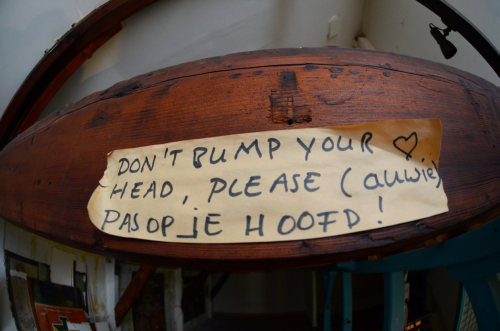 DON'T BUMP YOUR ♡
HEAD, PLEASE (auwie)
PAS OP JE HOOFD!